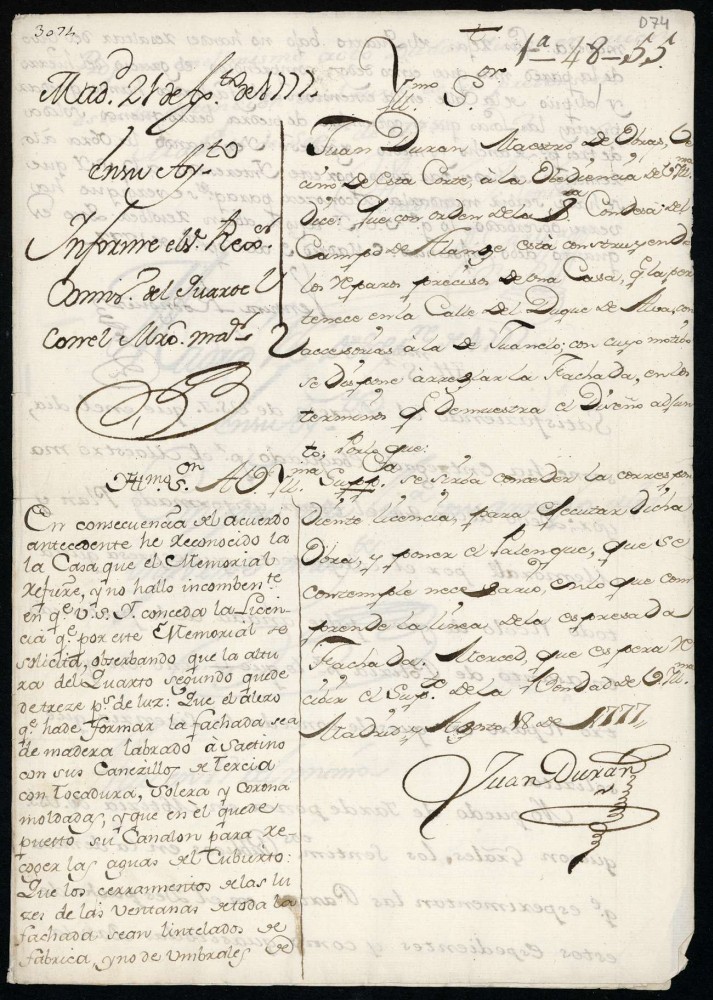 3074
D74
1ª-48-55.
Madd. 21 de Agto. de 1777.
En su Ayto.
Informe el Sr. Rexor.
Comisº. del Quartel
con el Mro. maor.
Yllmo. Sor.
Juan Duran Maestro de Obras, Ve
cino de esta Corte, à la Obediencia de V. Yllma.
Dice: Que con orden de la Sra. Condesa del
Campo de Alange, está construyendo
los reparos precisos de una Casa, q. la per
tenece en la Calle del Duque de Alva, con
accesorias à la de Juanelo; con cuyo motibo
se dispone à rreglar la Fachada, en los
terminos q. demuestra el Diseño adjun
to; Por lo que:
A V. Yllma. Suppca. se sirba conceder la corresp
diente licencia, para egecutar dicha
Obra, y poner el Palenque, que se
contemple necesario, en lo que com
prende la linea, de la espresada
Fachada. Merced, que espera re
civir el Supte. de la Bondad de V. Yllma.
Madrid y Agosto 18 de 1777,,
Juan Duran
Yllmo. Sor.
En consecuencia del acuerdo
antecedente he Reconocido la
la Casa que el Memorial
refiere, y no hallo incombente.
en qe. V. S. Y. conceda la Licen
cia qe. por este Memorial se
solicita, obserbando que la altu
ra del Quarto segundo quede
de treze ps. de luz: Que el alero
qe. hade formar la fachada sea
de madera labrado à Saetino
con sus Canezillos de Tercia
con Tocadura, Solera y Corona
moldadas, y que en èl quede
puesto su Canalon para re
coger las aguas del Cubierto:
Que los cerramientos de las lu
zes de las ventanas de toda la
fachada sean lintelados de
fabrica, y no de Umbrales de